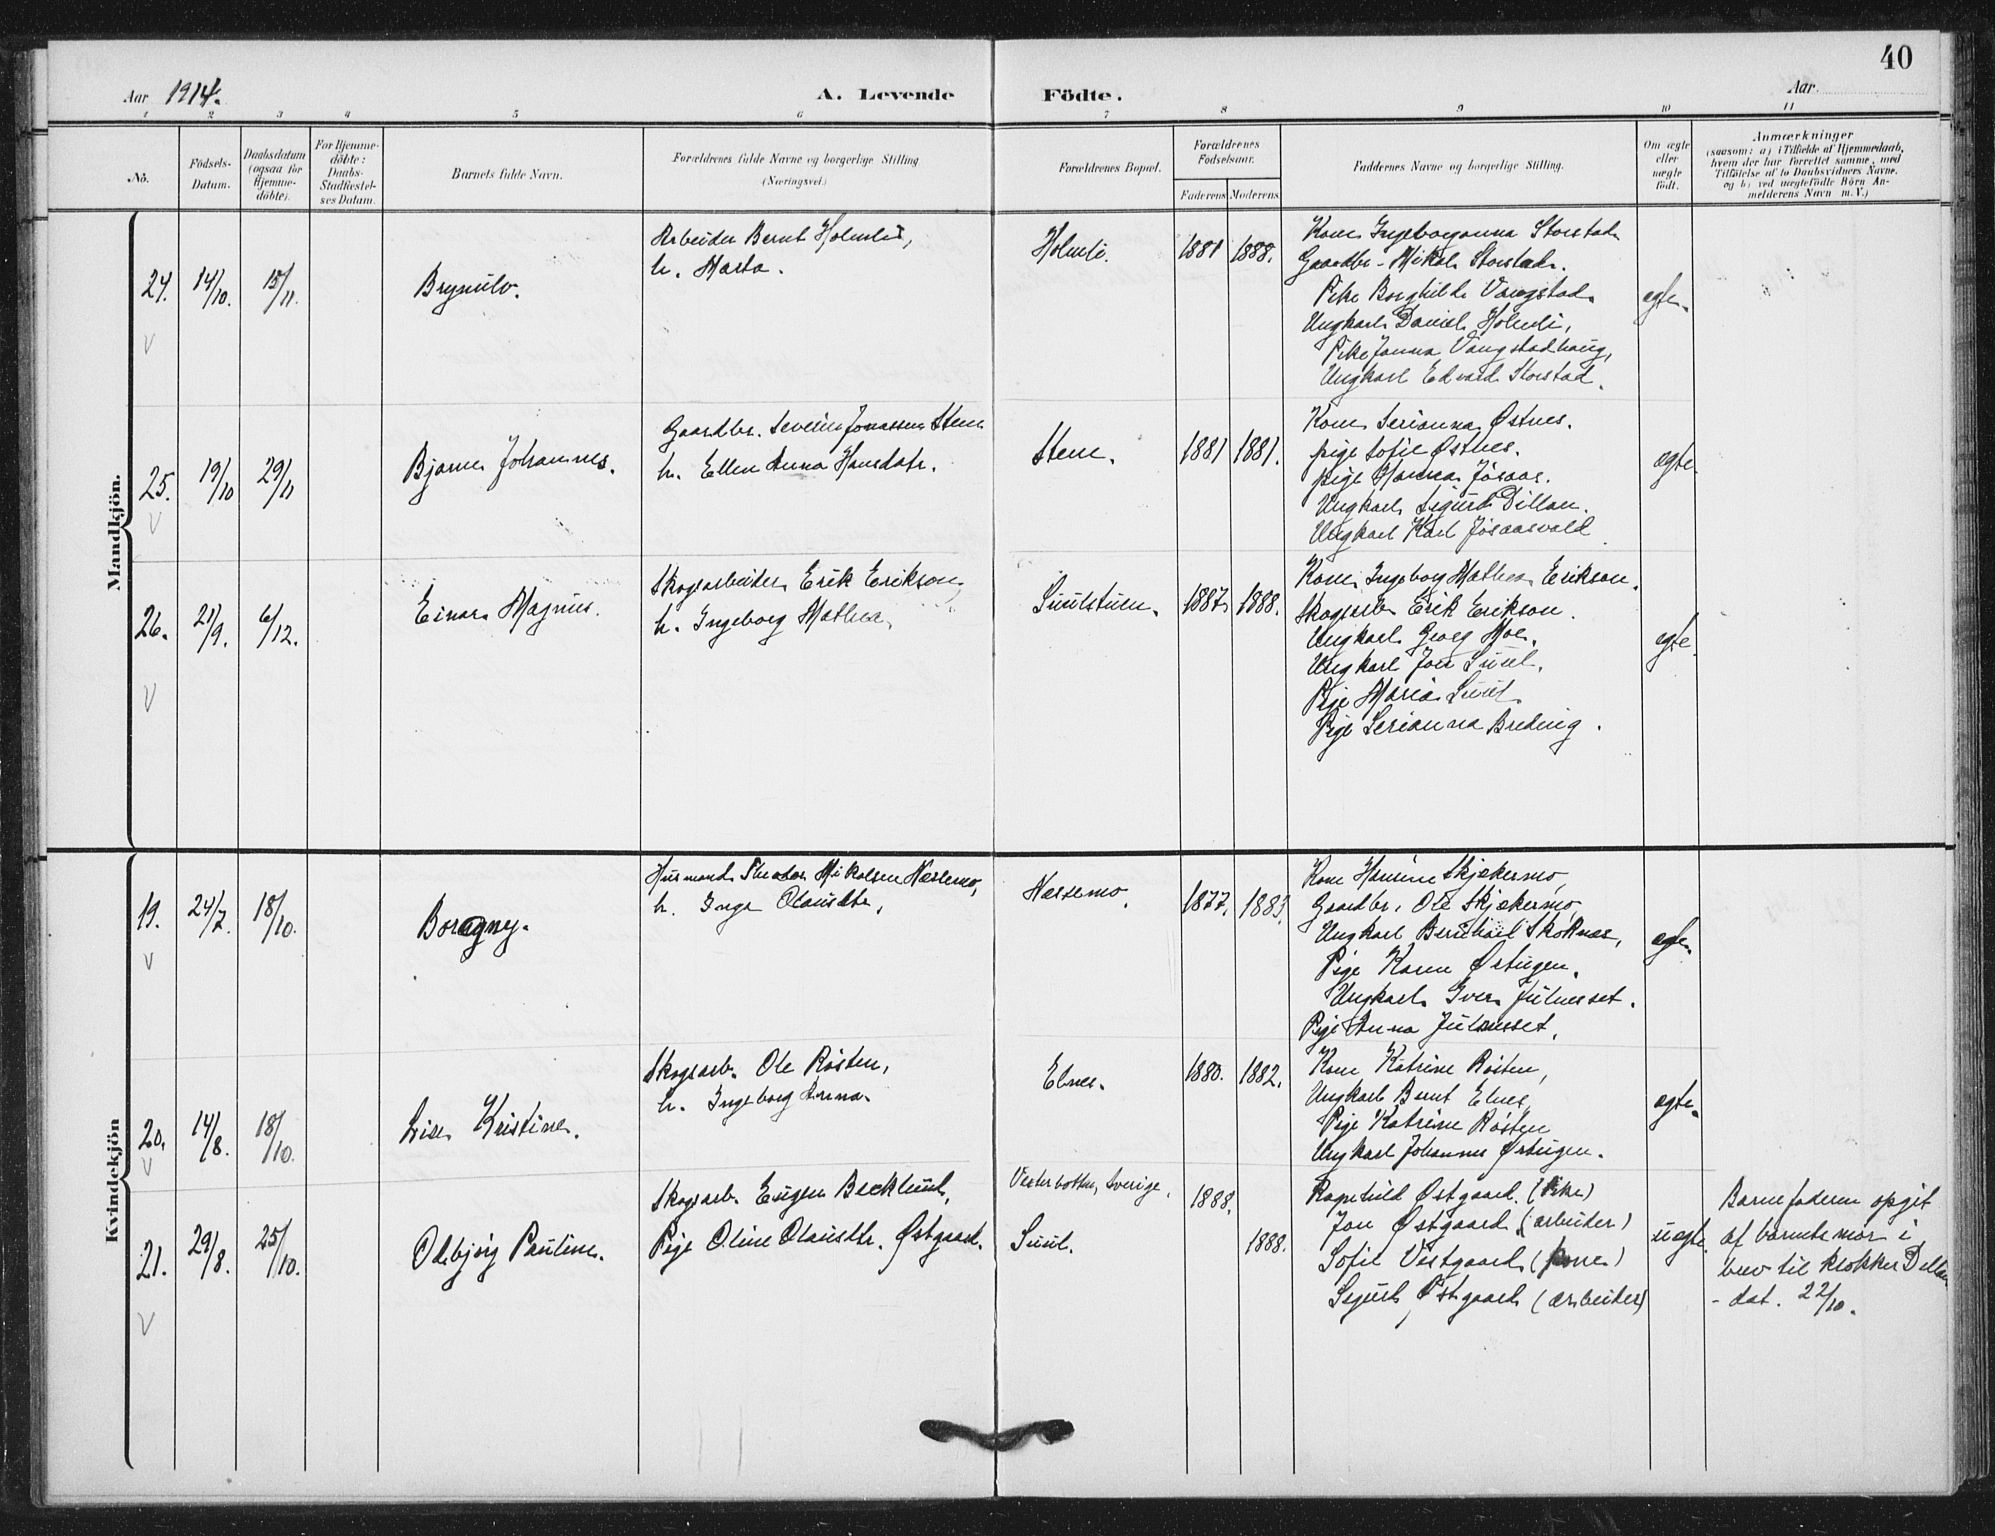 40
Aar 1914.
A. Levende Födte.
Aar
1 2 3 4 5 6 7 8 9 10 11
No.
Födsels-Datum.
Daabsdatum (ogsaa for Hjemme-döbte).
For Hjemme-döbte: Daabs-Stadfæstel-ses Datum.
Barnets fulde Navn.
Forældrenes fulde Navne og borgerlige Stilling (Næringsvei.)
Forældrenes Bopæl.
Forældrenes Födselsaar.
Faderens Moderens
Faddernes Navne og borgerlige Stilling.
Om ægte eller uægte födt.
Anmærkninger
(saasom: a) i Tilfælde af Hjemmedaab,
hvem der har forrettet samme, med
Tilföielse af to Daabsvidners Navne,
og b) ved uægtefödte Börn An-
melderens Navn m. V.)
Mandkjön.
24. 14/10. 15/11. Brynulv.
Arbeider Bernt Holmli,
h. Marta.
Holmli. 1881 1888.
Kone Ingeborganna Storstad
Gaardbr. Mikal Storstad.
Pike Borghild Vangstad.
Ungkarl Daniel Holmli,
Pike Janna Vangstadhaug,
Ungkarl Edvard Storstad.
egte.
25. 19/10 29/11 Bjarne Johannes.
Gaardbr. Severin Jonassen Stene
h. Ellen Anna Hansdatr.
Stene. 1881 1881.
Kone Serianna Østnes.
pige Sofie Østnes.
pige Hanna Jøsaas.
Ungkarl Sigurd Dillan.
Ungkarl Karl Jøsaasvald
ægte
26. 21/9. 6/12. Einar Magnus.
Skogsarbeider Erik Erikson,
h. Ingeborg Mathea.
Suulstuen. 1887. 1888.
Kone Ingeborg Mathea Erikson.
Skogsarb. Erik Erikson.
Ungkarl Georg Moe.
Ungkarl Jon Suul.
Pige Maria Suul
Pige Serianna Breding.
egte
Kvindekjön
19. 24/7. 18/10. Boragny.
Husmand Theodor Mikalsen Næssemo,
h. Inga Olausdtr,
Næssemo. 1877. 1883.
Kone Hansine Skjækermo,
Gaardbr. Ole Skjækermo,
Ungkarl Bernhard Skoknes,
Pige Karen Ørtugen.
Ungkarl Iver Julnesset.
Pige Anna Julnesset.
ægte.
20. 14/8. 18/10. Lise Kristine.
Skogsarb. Ole Røsten,
h. Ingeborg Anna.
Elnes. 1880. 1882.
Kone Katrine Røsten,
Ungkarl Bernt Elnes,
Pige Katrine Røsten
Ungkarl Johannes Ørtugen.
ægte.
21. 29/8. 25/10. Oddbjørg Pauline.
Skogsarb. Eugen Becklund,
Pige Oline Olausdtr. Østgaard.
Vesterbotten, Sverige,
Suul.
1888.
1888.
Ragnhild Østgaard. (Pike)
Jon Østgaard (arbeider)
Sofie Vestgaard (kone)
Sigurd Østgaard (arbeider)
uægte.
Barnefaderen opgit
af barnets mor i
brev til klokker Dillan
- dat. 22/10.